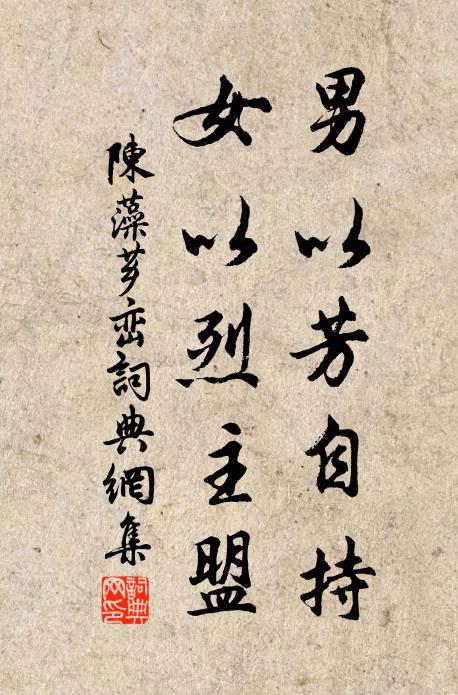 男以芳自持
女以烈主盟
陳藻夢巒詞典網集
詞典網印